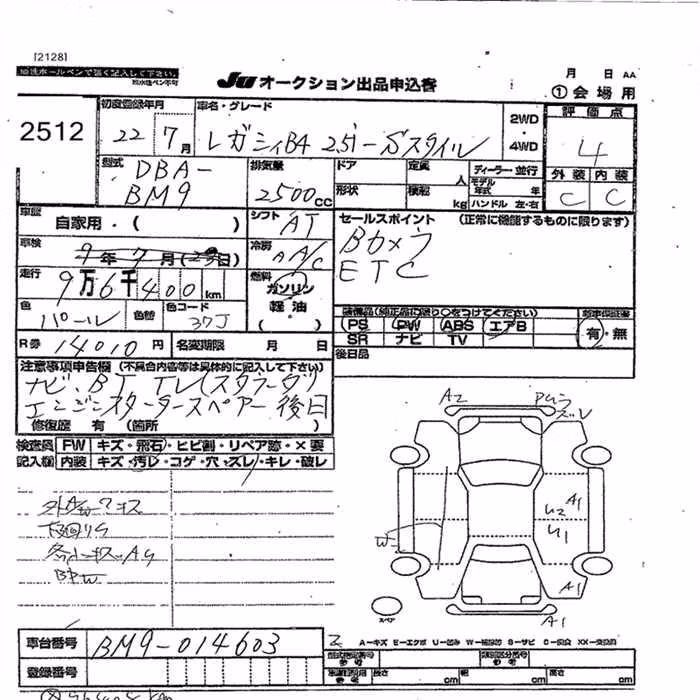 [2128]
Ju オークション出品申込書
月 日 AA
①会場用
2512
初度登録年月
22 7月
車名・グレード
レガシィB4 2.5i-Sスタイル
2WD
・
4WD
評価点
4
型式
DBA-
BM9
排気量
2500cc
ドア
定員
人
形状
積載
kg
ディーラー・並行
モデル
年式 年
ハンドル 左・右
外装 内装
C C
車歴
自家用・( )
シフト
AT
セールスポイント (正常に機能するものに限ります)
Bカメラ
ETC
車検
9年7月 日)
冷房
AA/C
走行
9万6千400km
燃料
ガソリン
軽油
( )
色
パール
色替
色コード
37J
装備品(純正品に限り○をつけてください)
PS PW ABS エアB
SR ナビ TV
新車保証書
有・無
R券 14010円
名変期限 月 日
後日品
注意事項申告欄 (不具合内容等は具体的に記入して下さい)
ナビ、BT
エンジンスタータースペアー後日
修復歴 有 (箇所 )
検査員 FW キズ・飛石・ヒビ割・リペア跡・×要
記入欄 内装 キズ・汚レ・コゲ・穴・ズレ・キレ・破レ
下廻りS
A2
ズレ
W
A1
U2
U1
A1
A1
スペア
車台番号 BM9-014603
A-キズ E-エクボ U-凹み W-補修跡 S-サビ C-腐食 XX-交換済
登録番号
型式指定番号
参考
類別区分番号
参考
長さ cm 幅 cm 高さ cm